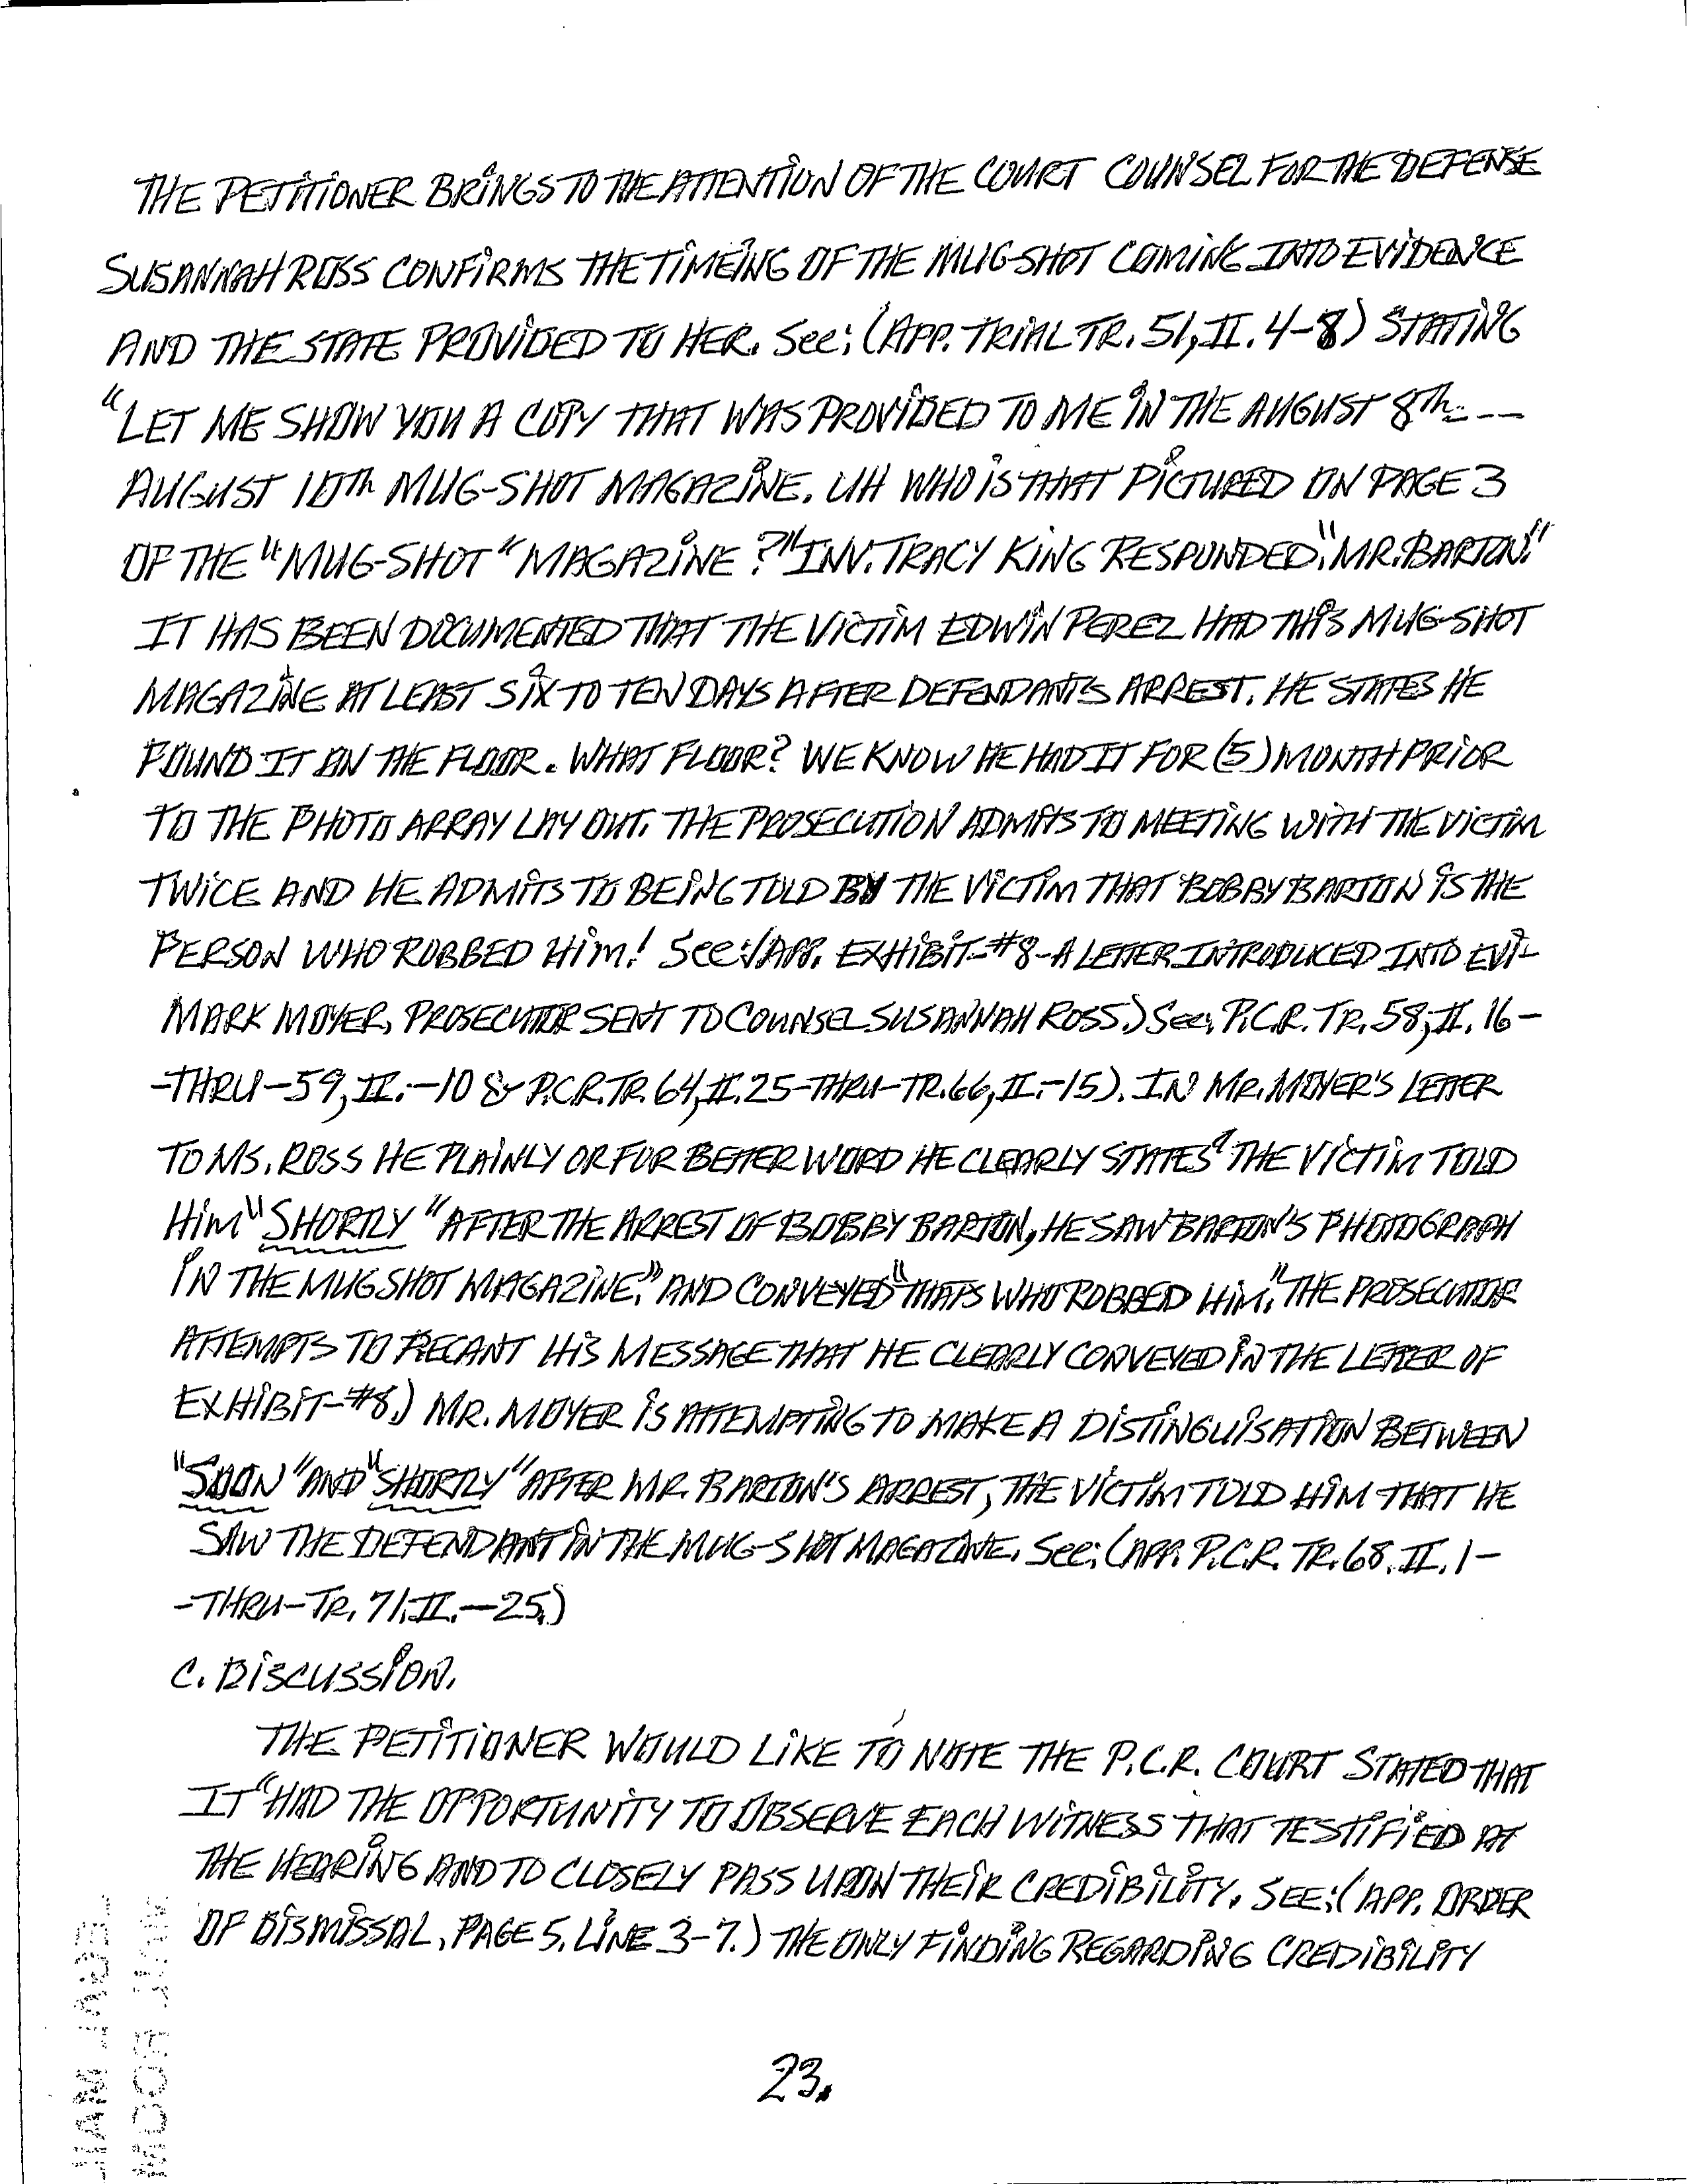 THE PETITIONER BRINGS TO THE ATTENTION OF THE COURT COUNSEL FOR THE DEFENSE
SUSANNAH ROSS CONFIRMS THE TIMEING OF THE MUG-SHOT COMING INTO EVIDENCE
AND THE STATE PROVIDED TO HER. See; (APP. TRIAL TR. 51, II. 4-8) STATING
"LET ME SHOW YOU A COPY THAT WAS PROVIDED TO ME IN THE AUGUST 8th---
AUGUST 10th MUG-SHOT MAGAZINE. UH WHO IS THAT PICTURED ON PAGE 3
OF THE "MUG-SHOT" MAGAZINE?" INV. TRACY KING RESPONDED, "MR. BARTON."
IT HAS BEEN DOCUMENTED THAT THE VICTIM EDWIN PEREZ HAD THIS MUG-SHOT
MAGAZINE AT LEAST SIX TO TEN DAYS AFTER DEFENDANTS ARREST. HE STATES HE
FOUND IT ON THE FLOOR. WHAT FLOOR? WE KNOW HE HAD IT FOR (5) MONTH PRIOR
TO THE PHOTO ARRAY LAY OUT. THE PROSECUTION ADMITS TO MEETING WITH THE VICTIM
TWICE AND HE ADMITS TO BEING TOLD BY THE VICTIM THAT BOBBY BARTON IS THE
PERSON WHO ROBBED HIM! See: (APP. EXHIBIT-#8-A LETTER INTRODUCED INTO EVI-
MARK MOYER, PROSECUTOR SENT TO COUNSEL SUSANNAH ROSS.) See, P.C.R. TR. 58, II. 16-
-THRU-59, II.-10 & P.C.R. TR. 64, II. 25-THRU-TR. 66, II.-15). IN MR. MOYER'S LETTER
TO MS. ROSS HE PLAINLY OR FOR BETTER WORD HE CLEARLY STATES "THE VICTIM TOLD
HIM "SHORTLY" AFTER THE ARREST OF BOBBY BARTON, HE SAW BARTON'S PHOTOGRAPH
IN THE MUGSHOT MAGAZINE." AND CONVEYED "THATS WHO ROBBED HIM." THE PROSECUTOR
ATTEMPTS TO RECANT HIS MESSAGE THAT HE CLEARLY CONVEYED IN THE LETTER OF
EXHIBIT-#8.) MR. MOYER IS ATTEMPTING TO MAKE A DISTINGUISATION BETWEEN
"SOON" AND "SHORTLY" AFTER MR. BARTON'S ARREST, THE VICTIM TOLD HIM THAT HE
SAW THE DEFENDANT IN THE MUG-SHOT MAGAZINE. See; (APP. P.C.R. TR. 68, II. 1-
-THRU-TR. 71, II.-25.)
C. DISCUSSION.
THE PETITIONER WOULD LIKE TO NOTE THE P.C.R. COURT STATED THAT
IT "HAD THE OPPORTUNITY TO OBSERVE EACH WITNESS THAT TESTIFIED AT
THE HEARING AND TO CLOSELY PASS UPON THEIR CREDIBILITY. SEE; (APP. ORDER
OF DISMISSAL, PAGE 5, LINE 3-7.) THE ONLY FINDING REGARDING CREDIBILITY
23.